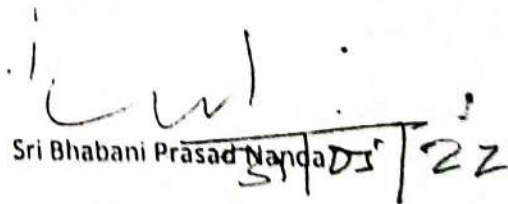 Sri Bhabani Prasad Nanda
31/05/22